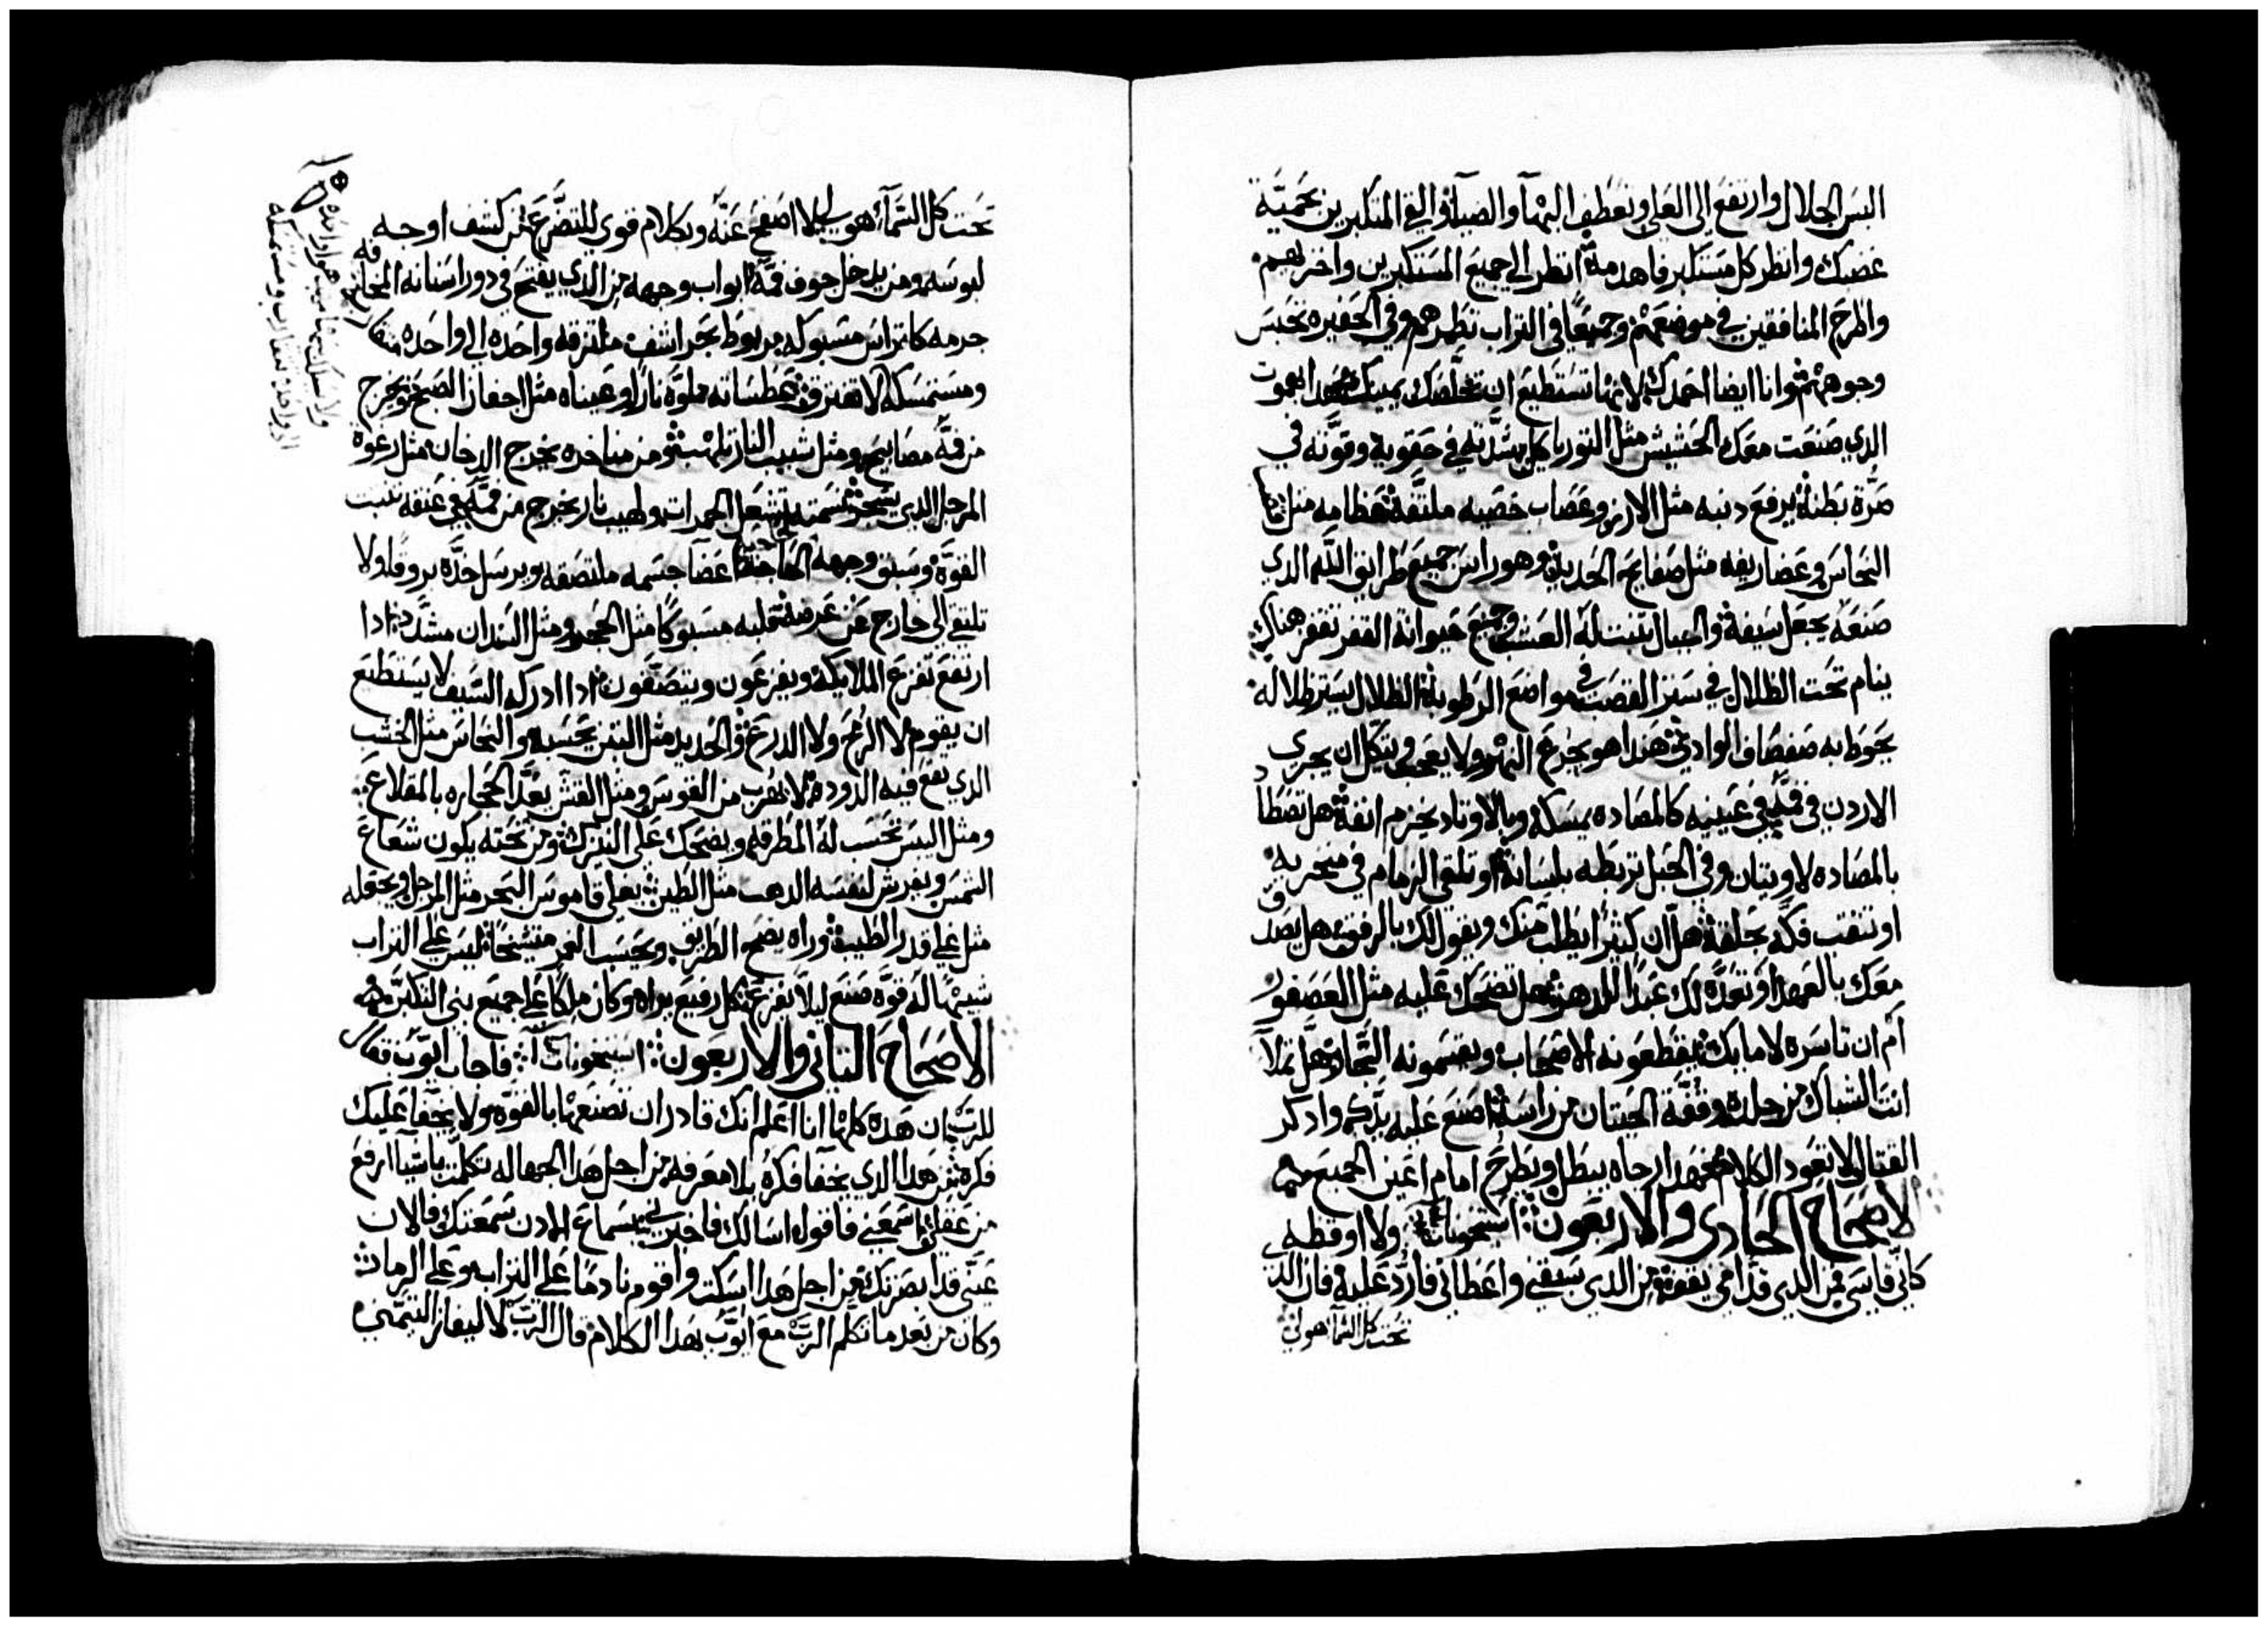 البس الجلال وارتفع الى العلى وتعطف البهآ والضيآ والق المتكبرين بحميّة
غضبك وانظر كل مستكبر فاهدمه انظر الى جميع المستكبرين واخزلهم
واطرح المنافقين في موضعهم وجميعًا في التراب تطمرهم وفي الحفيره تحبس
وجوههم وانا ايضا احمدك لانها تستطيع ان تخلّصك يمينك بهموت
الدي صنعت معك الحشيش مثل التور ياكل شدّته في حقويه وقوّته في
صرّة بطنه يرفع دنبه مثل الارز وعصاب خصيه ملتفّة عظامه مثل
النحاس وعضاريفه مثل صفايح الحديد وهو راس جميع طرايق الله الدي
صنعه يجعل سيفه والجبال تنبت له العشب وجميع حيوانة القفر تقفز هناك
ينام تحت الظلال في ستر القصب في مواضع الرطوبة الظلال يستر ظلاله
يحوط به صفصاف الوادي هدا هو يجرع النهر ولا يعجب ويتكل ان يجري
الاردن في فمه في عينيه كالمصاده يمسكه وبالاوتاد يخزم انفه هل تصطا
بالمصاده لاويتان وفي الحبل تربطه بلسانه او تلقي الزمام في منخريه
او تنقب فكّه بحلقة هل ان كتيرًا يطلب منك ويقول لك بالرفق هل يصد
معك بالعهد او تعدّه لك عبدًا للدهر هل تضحك عليه مثل العصفور
أم ان تاسره لامايك يقطعونه الاصحاب ويقسمونه التجار هل تملا
انت الشباك من جلده وقفّة الحيتان من راسه اصنع عليه يدّك وادكر
القتال لا تعود الكلام فهدا رجاه يبطل ويطرح امام اعين الجميع
الاصحاح الحادي والاربعون استيخونات ولا اوقظه
كاني قاسي من الدي قدامي يقف من الدي سبقني واعطاني فاردّ عليه فان الدي
تحت كل السمآ هو لي
تحت كل السمآ هو لي لا اصفح عنّه وبكلام قوي للتضرّع من كشف اوجه
لبوسه ومن يدخل جوف فمّه ابواب وجهه من الدي يفتح في دور اسنانه المخافه
جرمه كاتراس مسبوكه مربوط بحراشف ملتزقه واحده الى واحده
ومستمسكه لا تفترق عطساته مملوّة نار وعيناه مثل اجفان الصبح يخرج
من فمّه مصابيح ومثل شبيب النار تلهب ومن مناخره يخرج الدخان مثل رغوة
المرجل الدي يسخر نسمته تشعل الجمرات ولهيب نار يخرج من فمّه في عنقه تنبت
القوّة وتسبق وجهه الحاجة اعضا جسمه ملتصقه ويرسل حدّه بروقًا ولا
تلتقي الى خارج عن عرضه قلبه مسبوكًا مثل الحجر ومثل السندان مشدّد ادا
ارتفع تفزع الملايكة ويفزعون ويتصفّون ادا ادركه السيف لا يستطيع
ان يقوم لا الرمح ولا الدرع والحديد مثل التبن يحسبه والنحاس مثل الخشب
الدي يقع فيه الدوده لا يهرب من القوس ومثل القش يعدّ الحجاره بالمقلاع
ومثل اليبس تحسب له المطرقه ويضحك على النيزك ومن تحته يكون شعاع
الشمس ويفرش لنفسه الدهب مثل الطين يغلي قاموس البحر مثل المرجل ويجعله
مثل غلي قدر الطيب وراه يضي الطريق ويحسب الغمر متشيخًا ليس على التراب
شبيهًا له قوّه صنع ليلا يفزع كل رفيع يراه وكان ملكًا على جميع بني التكبّر
الاصحاح التاني والاربعون استيخونات فاجاب ايّوب قايلا
للربّ ان هده كلها انا اعلم انك قادر ان تصنعها بالقوّه ولا يخفا عليك
فكره من هدا الدي يخفا فكرةً بلا معرفه من اجل هدا الجهاله تكلّمت باشيا ارفع
من عقلي اسمعني فاقول اسالك فاخبرني بسماع الادن سمعتك فالان
عيني قد ابصرتك من اجل هدا اسكت واقوم نادمًا على التراب وعلى الرماد
وكان من بعد ما تكلّم الربّ مع ايّوب بهدا الكلام قال الربّ لاليفاز التيمني